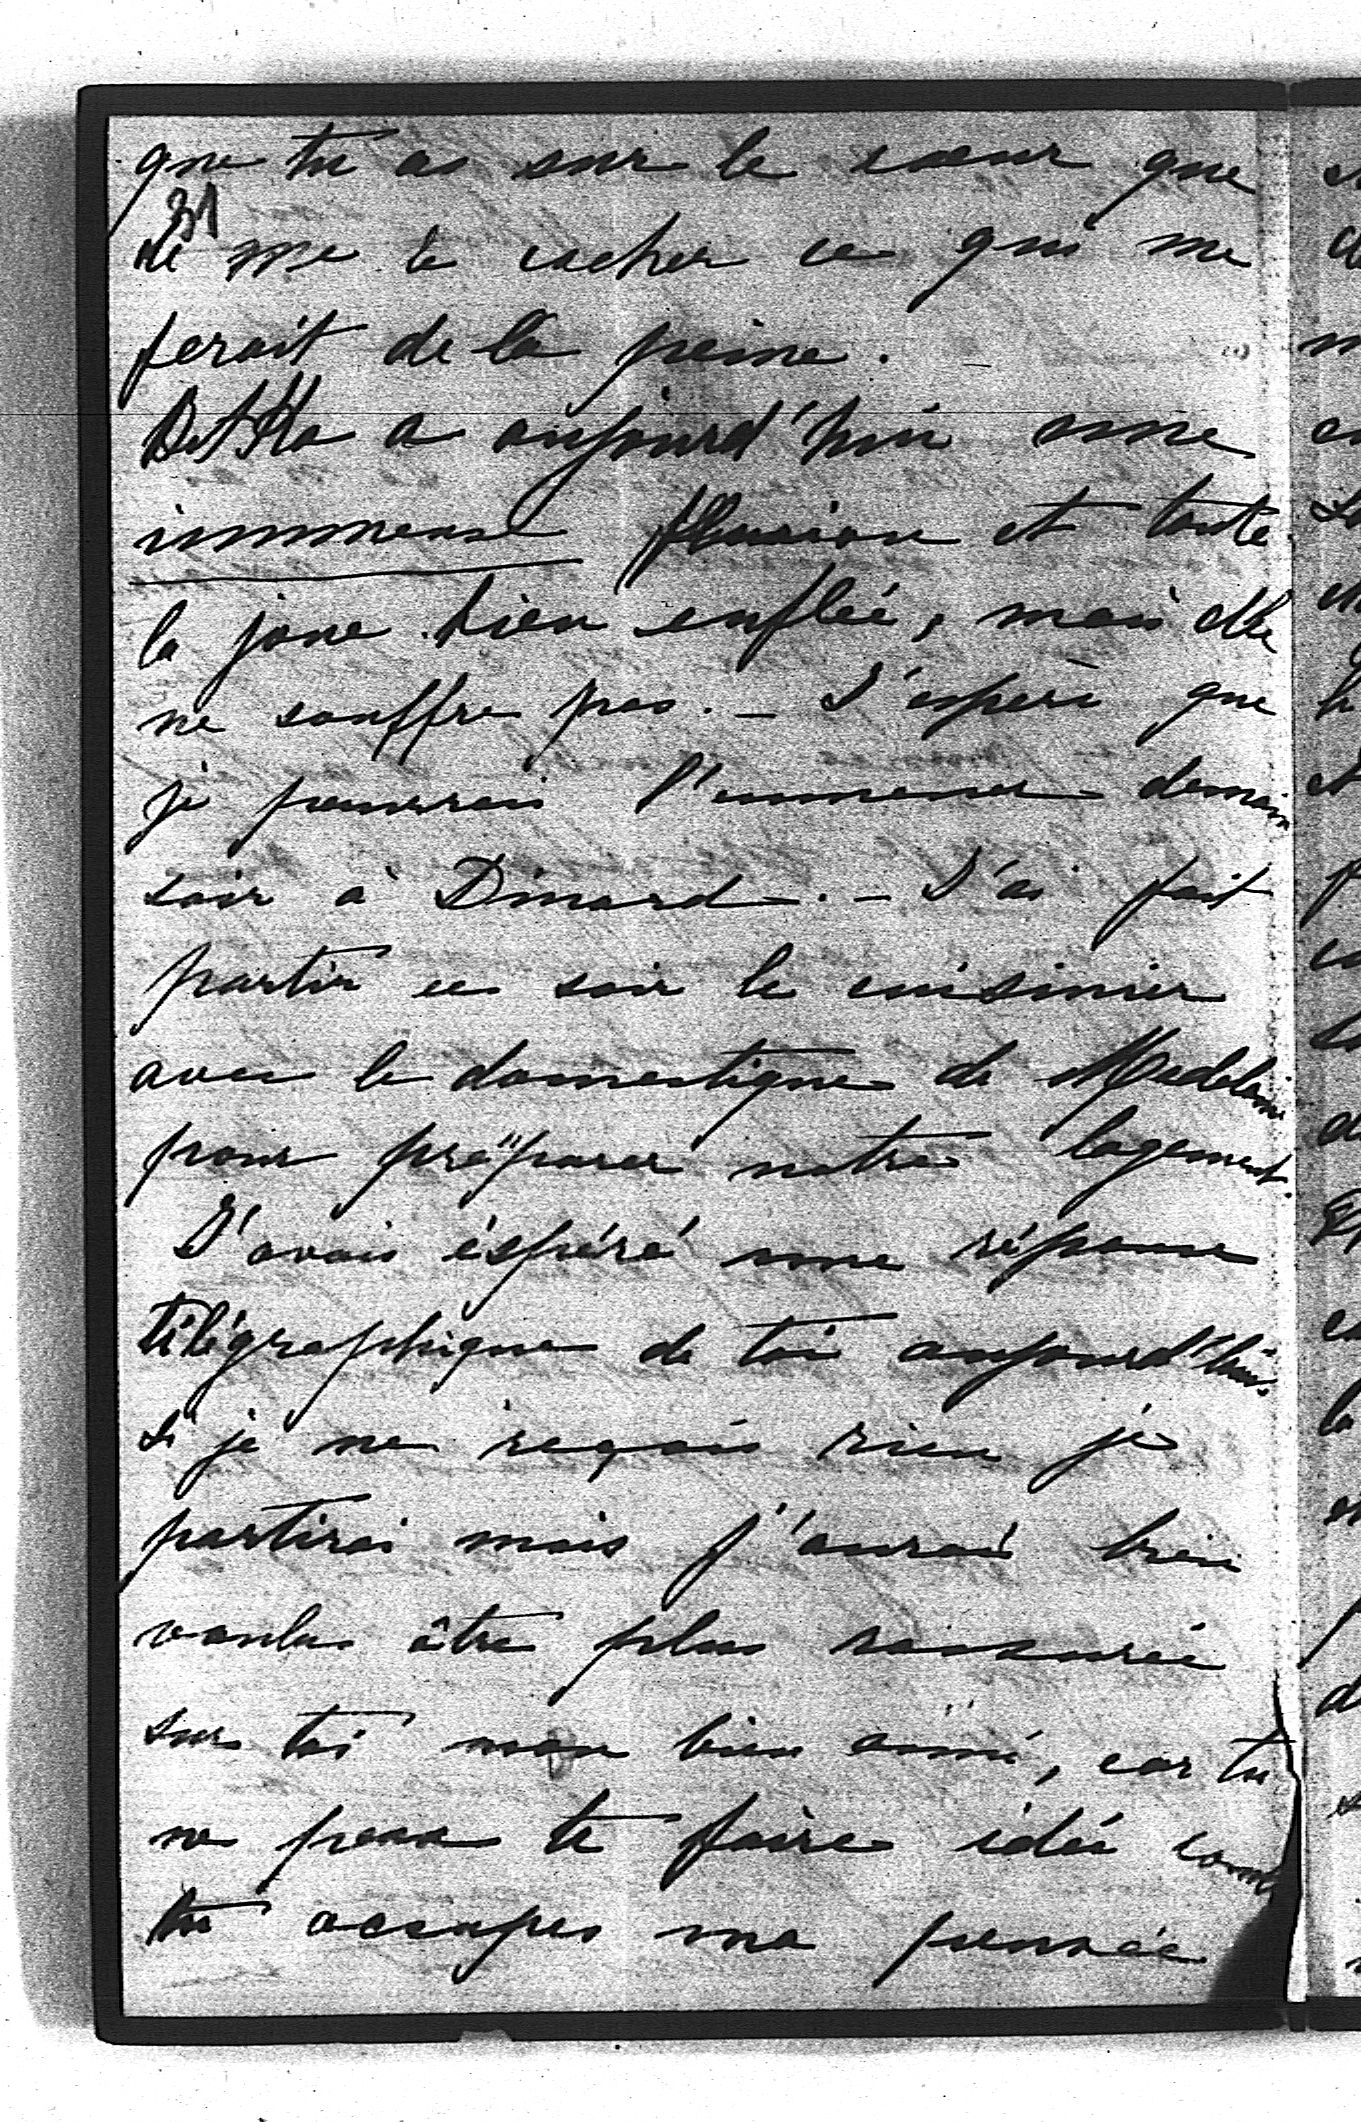 que tu as sur le cœur que
31
de me le cacher ce qui me
ferait de la peine.
a aujourd'hui une
immense fluxion et toute
la joue bien enflée, mais elle
ne souffre pas. _ J'espère que
je pourrai l'emmener demain
soir à Dinard _. _ J'ai fait
partir ce soir le cuisinier
avec le domestique de Madeleine
pour préparer notre logement.
J'avais éspéré une réponse
télégraphique de toi aujourd'hui.
Si je ne reçois rien je
partirai mais j'aurais bien
voulu être plus rassurée
sur toi mon bien aimé, car tu
ne peux te faire idée comme
tu occupes ma pensée